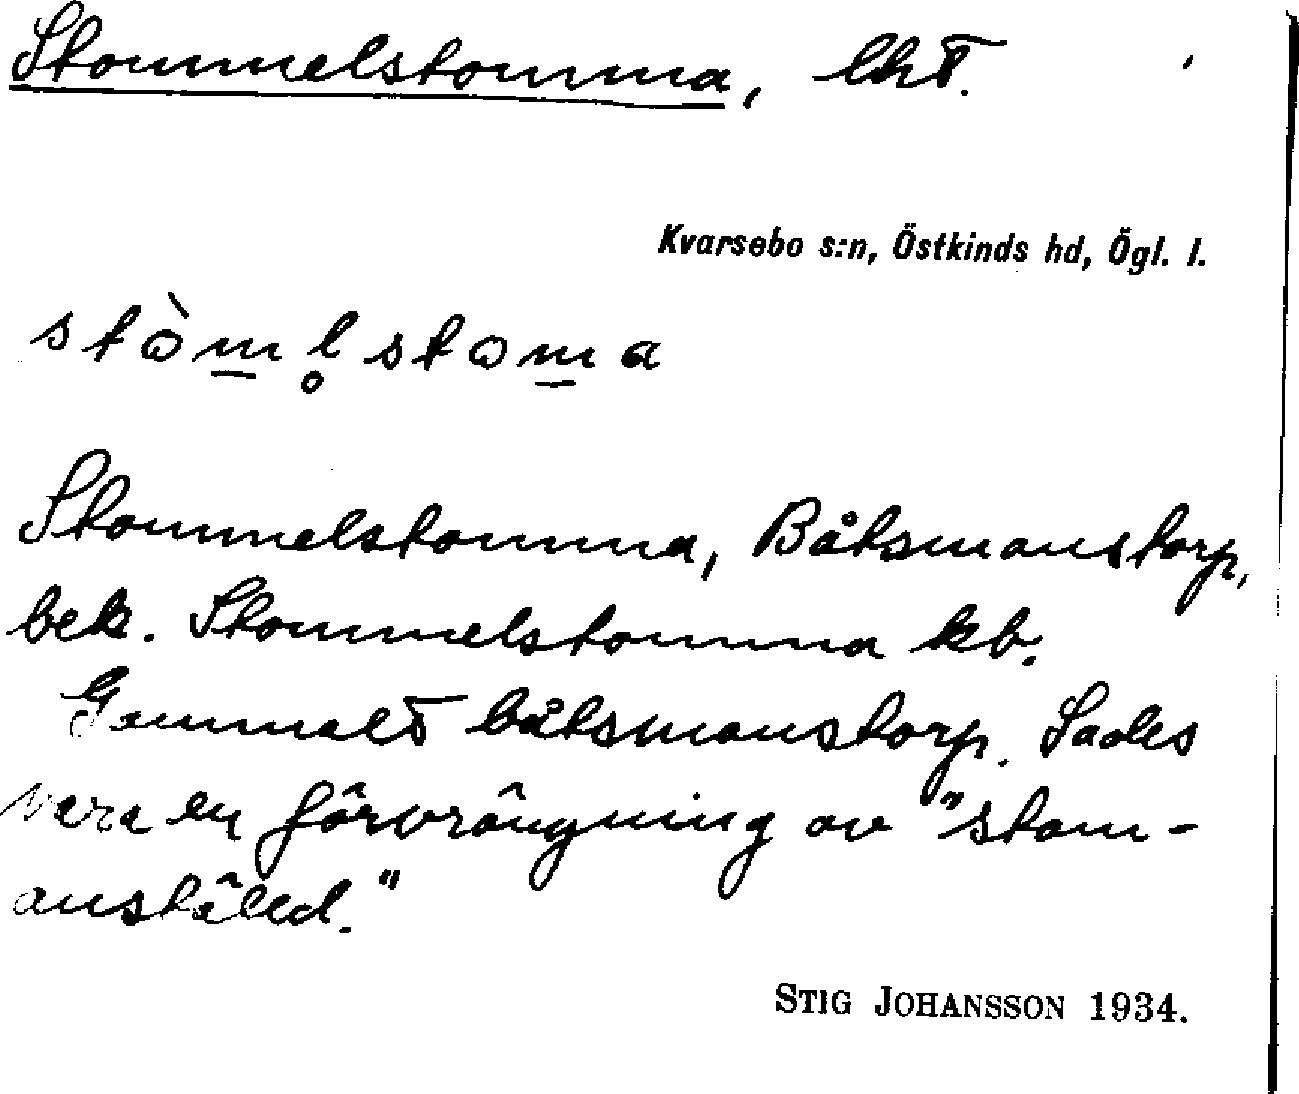 Stommelstomma, lht.
Kvarsebo s:n, Östkinds hd, Ögl. l.
stòm̲l̥stom̲a
Stommelstomma, Båtsmanstorp,
bek. Stommelstomma kb.
Gammalt båtsmanstorp. Sades
vara en förvrängning av "stam-
anställd."
STIG JOHANSSON 1934.